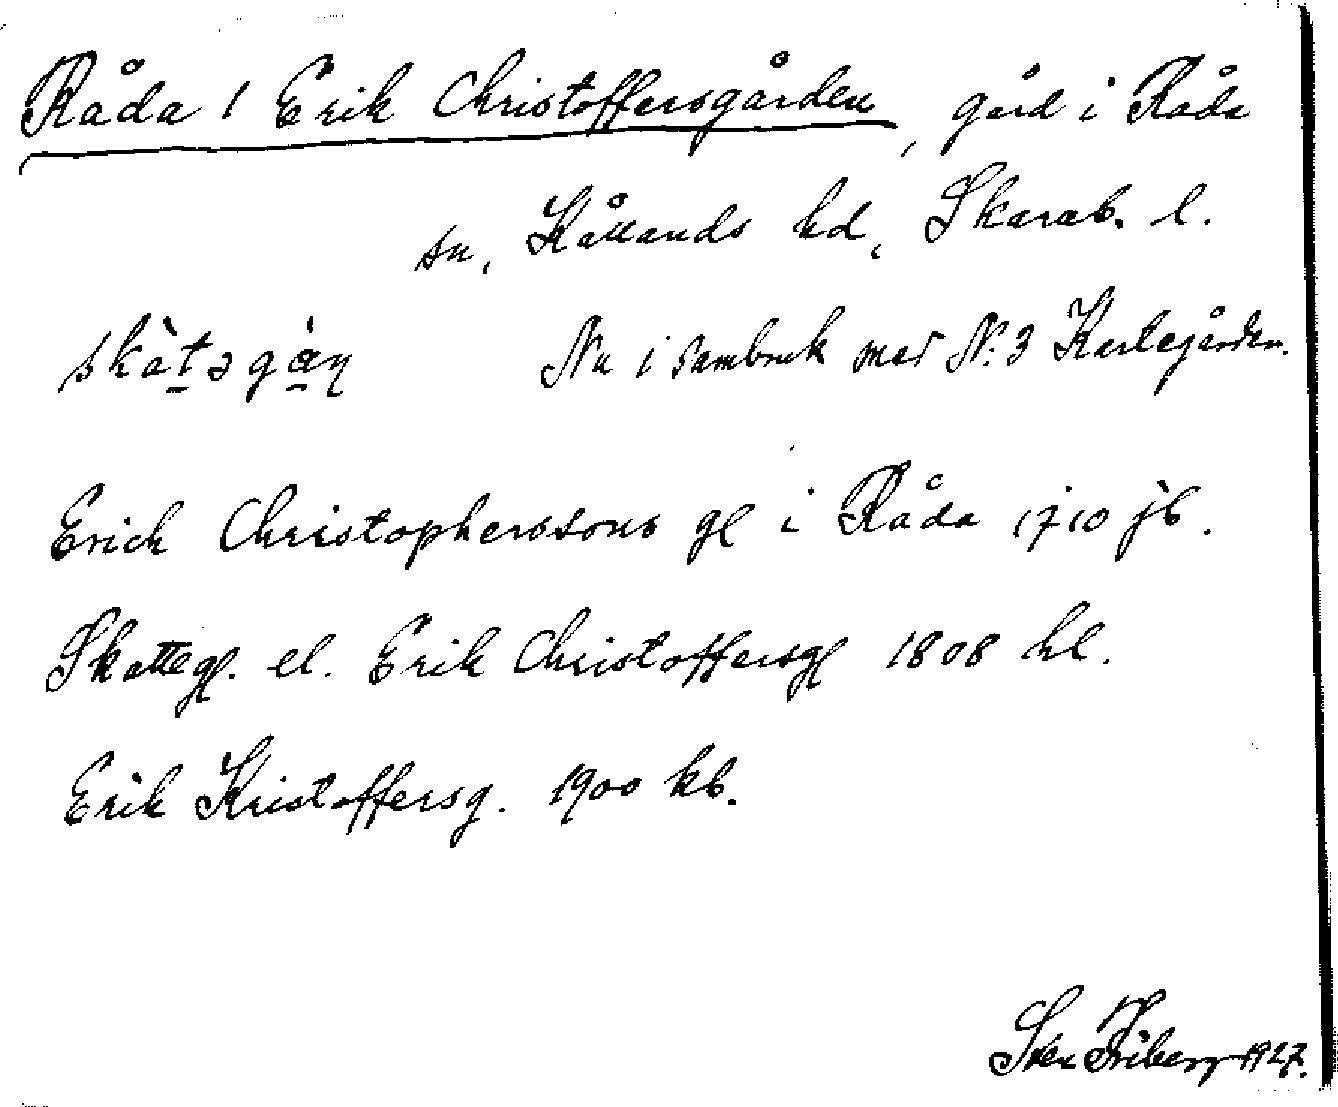 Råda 1 Erik Christoffersgården, gård i Råda
sn, Kållands hd, Skarab. l.
skàt̲ɘgà̲ɳ Nu i sambruk med N:3 Karlegården.
Erich Christopherssons gl i Råda 1710 jb.
Skattegl. el. Erik Christoffersgl 1808 hl.
Erik Kristoffersg. 1900 kb.
Sten Friberg 1927.